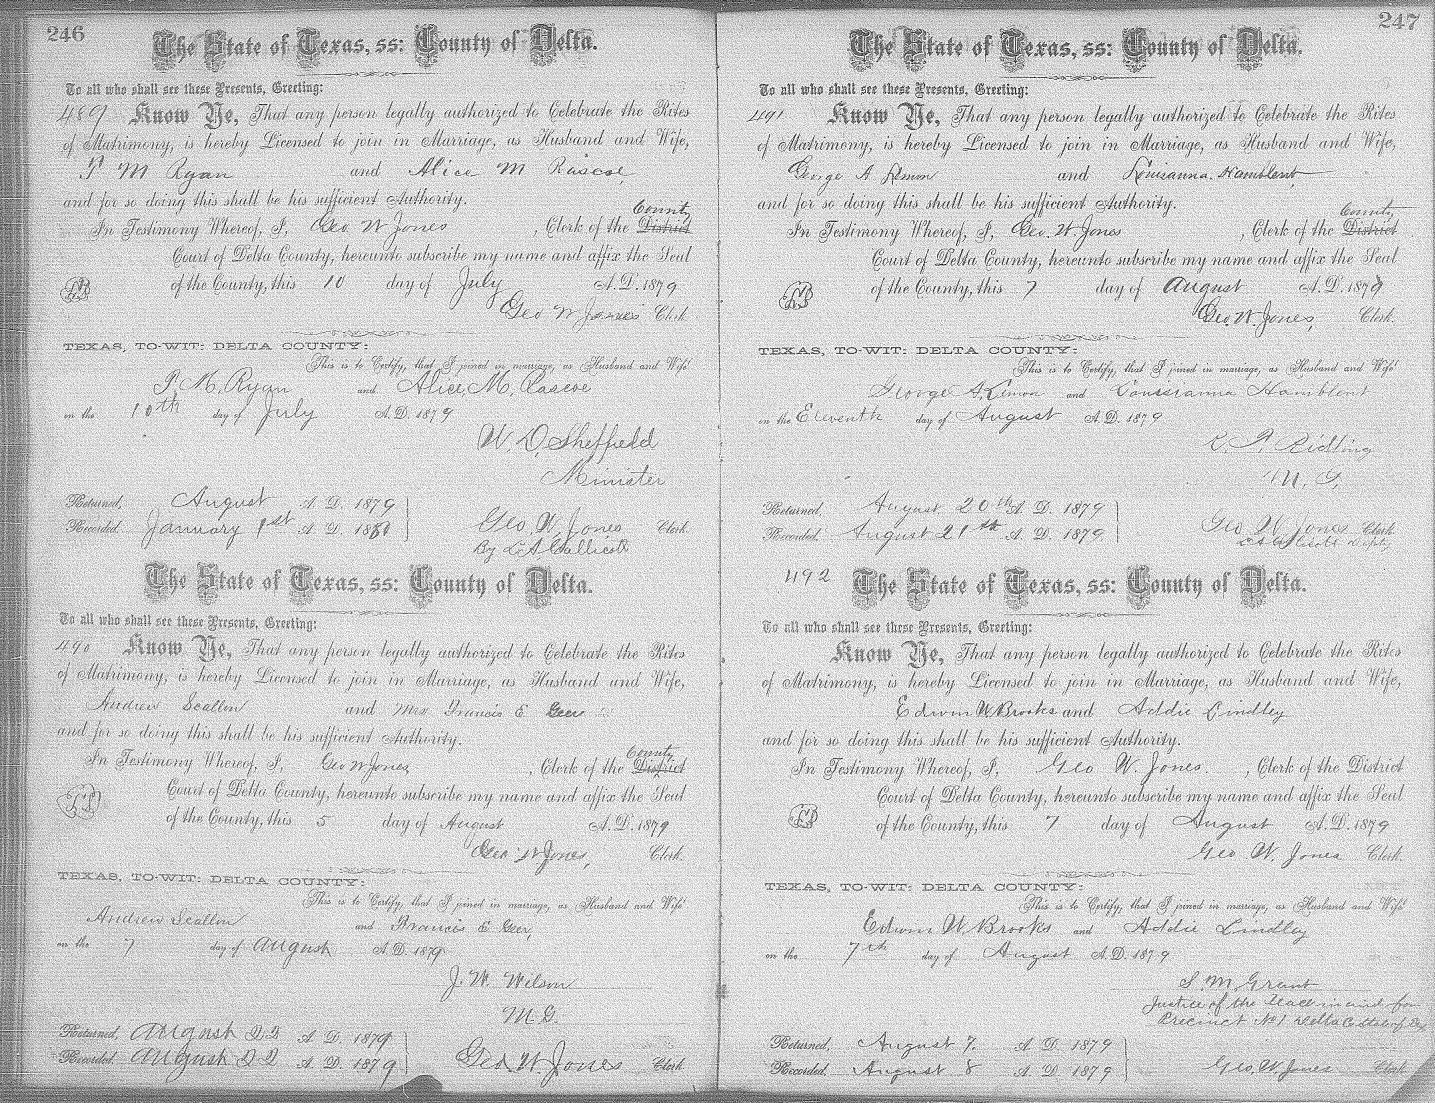 246
The State of Texas, ss: County of Delta.
To all who shall see these Presents, Greeting:
489 Know Ye, That any person legally authorized to Celebrate the Rites
of Matrimony, is hereby Licensed to join in Marriage, as Husband and Wife,
M Ryan and Alice M Rascoe
and for so doing this shall be his sufficient Authority.
County
In Testimony Whereof, I, Geo W Jones, Clerk of the District
Court of Delta County, hereunto subscribe my name and affix the Seal
of the County, this 10 day of July A.D. 1879
Geo W Jones Clerk.
TEXAS, TO-WIT: DELTA COUNTY:
This is to Certify, that I joined in marriage, as Husband and Wife
M. Ryan and Alice M. Rascoe
on the 10th day of July A.D. 1879
W. D. Sheffield
Minister
Returned, August A. D. 1879
Recorded January 1st A. D. 1881
Geo W. Jones Clerk
By L A Callicott
The State of Texas, ss: County of Delta.
To all who shall see these Presents, Greeting:
490 Know Ye, That any person legally authorized to Celebrate the Rites
of Matrimony, is hereby Licensed to join in Marriage, as Husband and Wife,
Andrew Scallin and Mrs Francis E Geer
and for so doing this shall be his sufficient Authority.
County
In Testimony Whereof, I, Geo W Jones, Clerk of the District
Court of Delta County, hereunto subscribe my name and affix the Seal
of the County, this 5 day of August A.D. 1879
Geo W Jones, Clerk.
TEXAS, TO-WIT: DELTA COUNTY:
This is to Certify, that I joined in marriage, as Husband and Wife
Andrew Scallin and Francis E Geer,
on the 7 day of August A.D. 1879
J. W. Wilson
M.G.
Returned, August 22 A. D. 1879
Recorded August 22 A. D. 1879
Geo. W. Jones Clerk
247
The State of Texas, ss: County of Delta.
To all who shall see these Presents, Greeting:
491 Know Ye, That any person legally authorized to Celebrate the Rites
of Matrimony, is hereby Licensed to join in Marriage, as Husband and Wife,
George A Lemon and Louisanna Hamblent
and for so doing this shall be his sufficient Authority.
County
In Testimony Whereof, I, Geo. W. Jones, Clerk of the District
Court of Delta County, hereunto subscribe my name and affix the Seal
of the County, this 7 day of August A.D. 1879
Geo. W. Jones, Clerk.
TEXAS, TO-WIT: DELTA COUNTY:
This is to Certify, that I joined in marriage, as Husband and Wife
George A. Lemon and Louisianna Hamblent
on the Eleventh day of August A.D. 1879
Ridling
M. G.
Returned, August 20th A. D. 1879
Recorded, August 21th A. D. 1879
Geo W Jones Clerk
Deputy
492 The State of Texas, ss: County of Delta.
To all who shall see these Presents, Greeting:
Know Ye, That any person legally authorized to Celebrate the Rites
of Matrimony, is hereby Licensed to join in Marriage, as Husband and Wife,
Edwin W. Brooks and Addie Lindley
and for so doing this shall be his sufficient Authority.
In Testimony Whereof, I, Geo W. Jones, Clerk of the District
Court of Delta County, hereunto subscribe my name and affix the Seal
of the County, this 7 day of August A.D. 1879
Geo W. Jones Clerk.
TEXAS, TO-WIT: DELTA COUNTY:
This is to Certify, that I joined in marriage, as Husband and Wife
Edwin W. Brooks and Addie Lindley
on the 7th day of August A.D. 1879
S. M. Grant
Justice of the Peace in and for
Precinct No 1 Delta Co State of Tex
Returned, August 7. A. D. 1879
Recorded, August 8 A. D. 1879
Geo. W. Jones Clerk